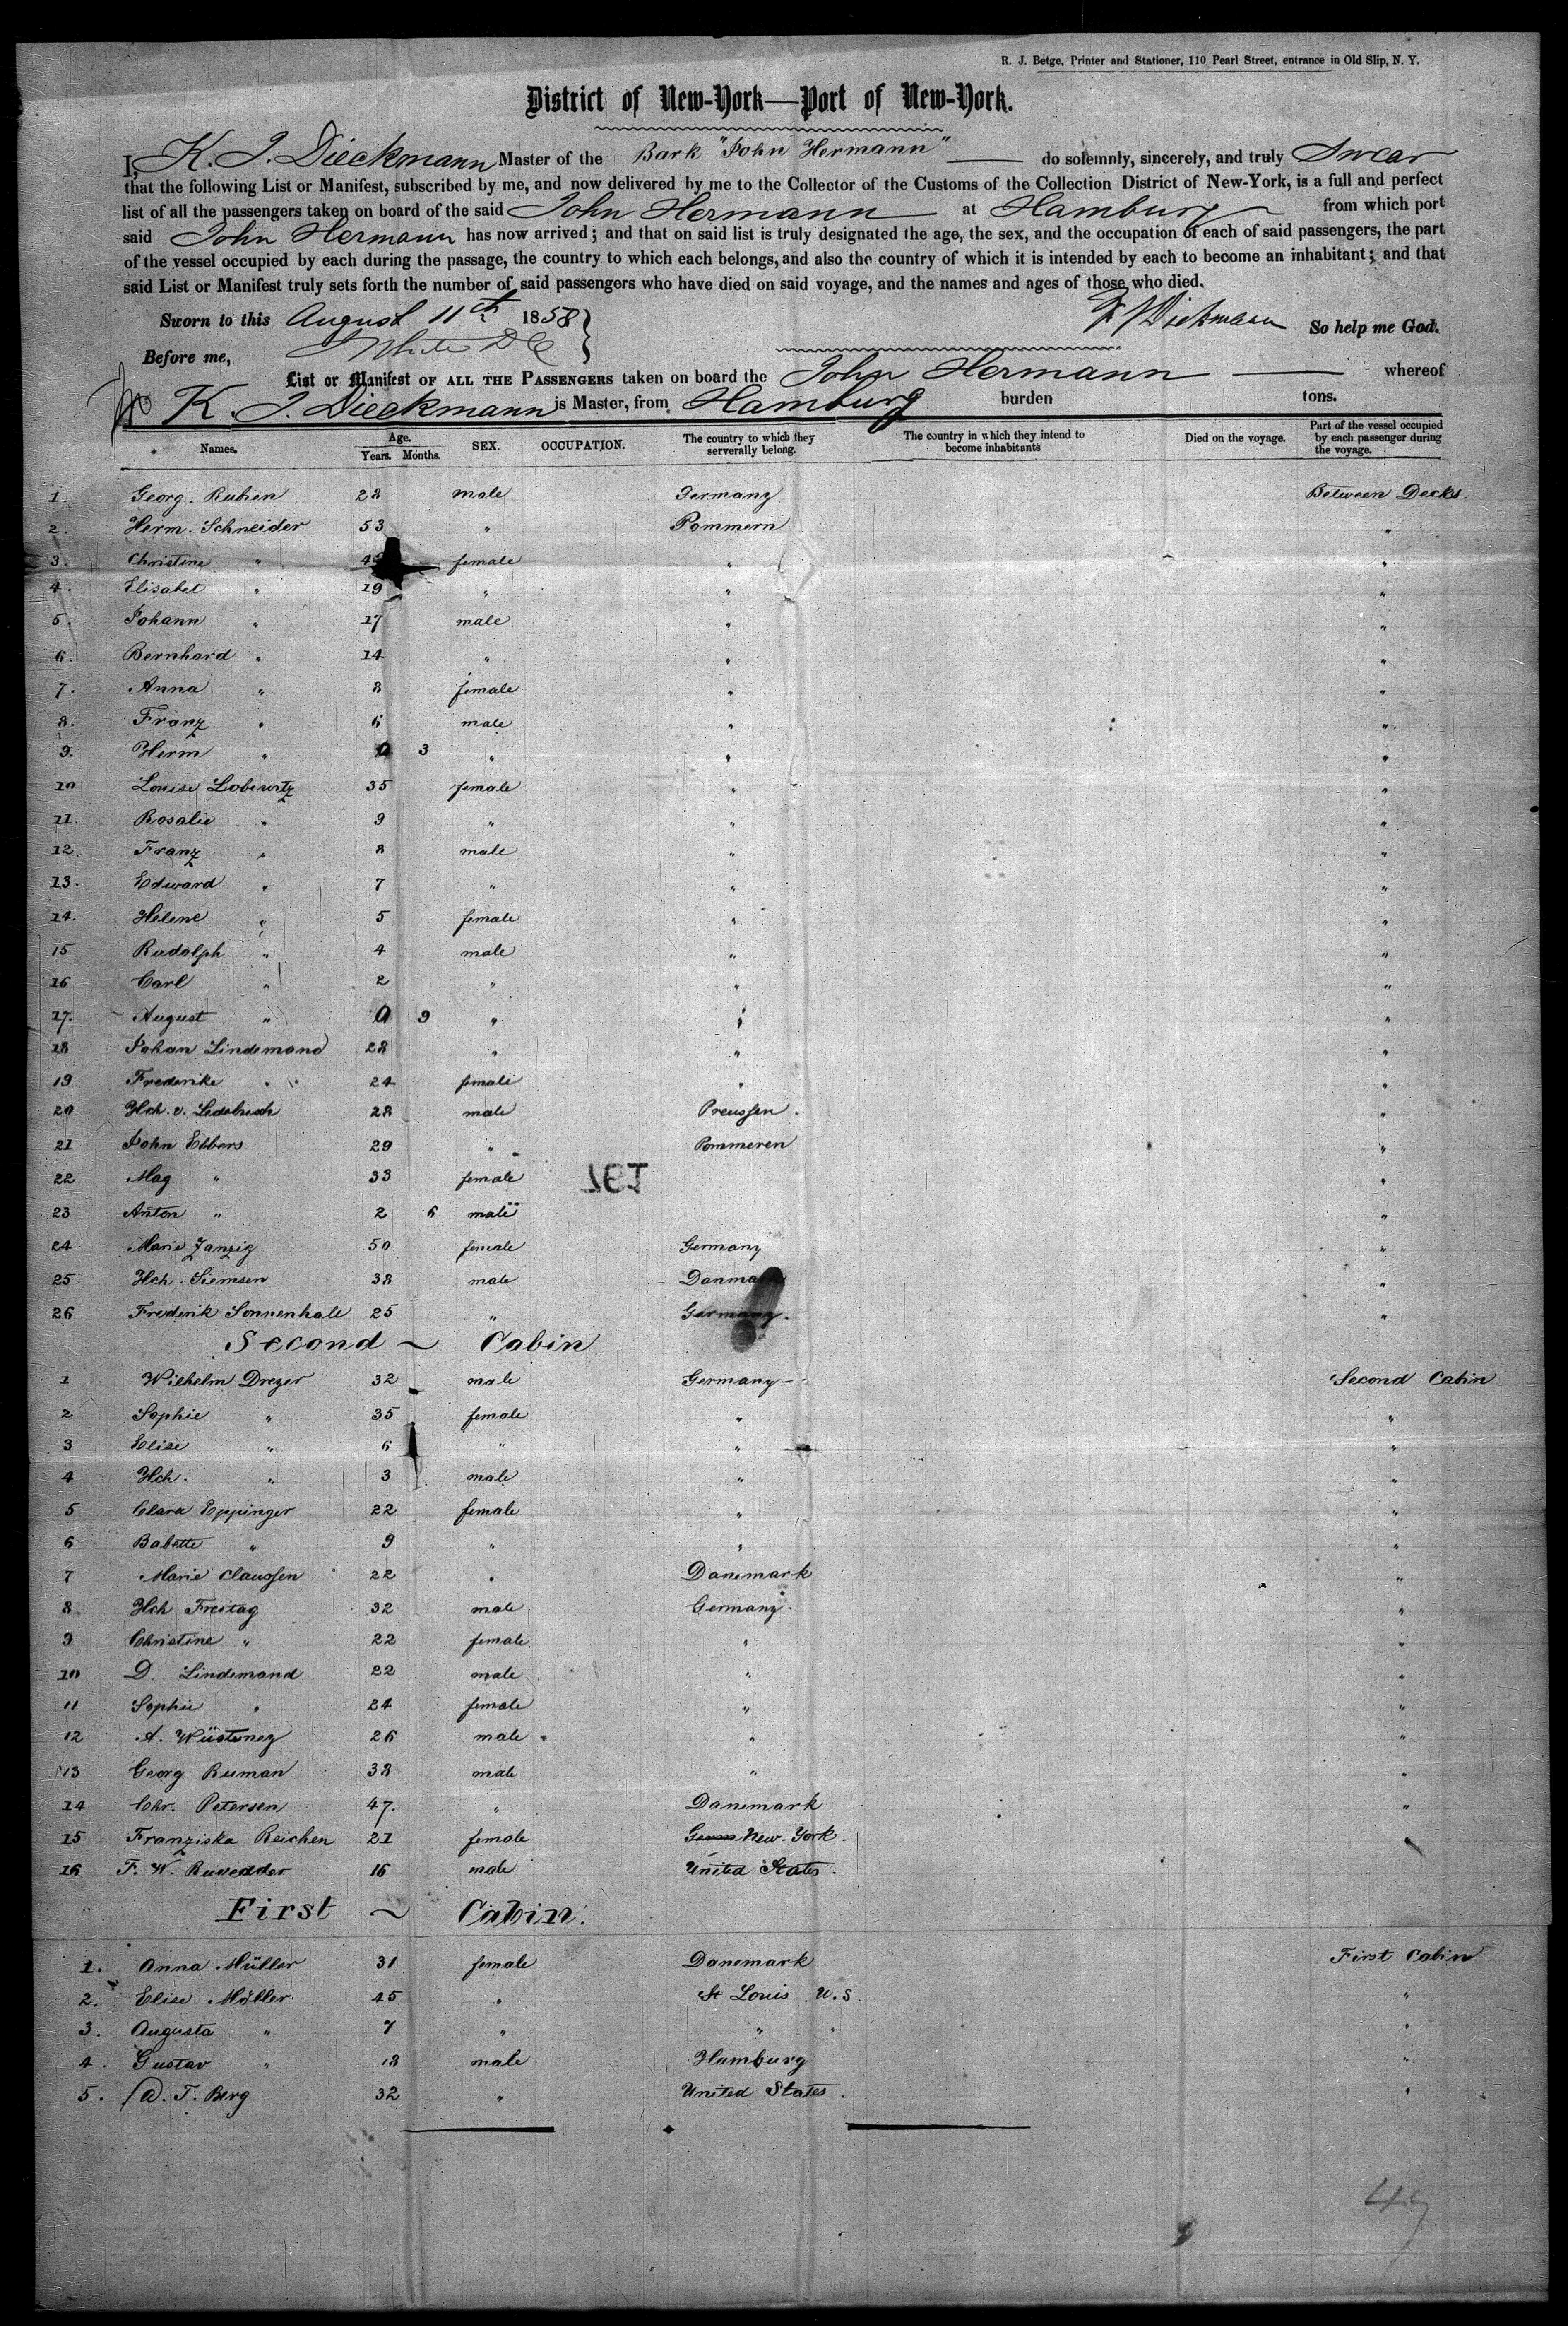 R. J. Betge, Printer and Stationer, 110 Pearl Street, entrance in Old Slip, N. Y.
District of New-York—Port of New-York.
I, K. J. Dieckmann Master of the Bark "John Hermann" do solemnly, sincerely, and truly Swear
that the following List or Manifest, subscribed by me, and now delivered by me to the Collector of the Customs of the Collection District of New-York, is a full and perfect
list of all the passengers taken on board of the said John Hermann at Hamburg from which port
said John Hermann has now arrived; and that on said list is truly designated the age, the sex, and the occupation of each of said passengers, the part
of the vessel occupied by each during the passage, the country to which each belongs, and also the country of which it is intended by each to become an inhabitant; and that
said List or Manifest truly sets forth the number of said passengers who have died on said voyage, and the names and ages of those who died.
Sworn to this August 11th 1858 Dieckmann So help me God.
Before me,
List or Manifest OF ALL THE PASSENGERS taken on board the John Hermann whereof
K. J. Dieckmann is Master, from Hamburg burden tons.
Names. Age. Years. Months. SEX. OCCUPATION. The country to which they serverally belong. The country in which they intend to become inhabitants Died on the voyage. Part of the vessel occupied by each passenger during the voyage.
1. Georg. Rubien 28 male Germany Between Decks.
2. Herm. Schneider 53 " Pommern "
3. Christine " female " "
4. Elisabet " 19 " " "
5. Johann " 17 male " "
6. Bernhard " 14 " " "
7. Anna " 8 female " "
8. Franz " 6 male " "
9. Herm " 0 3 " " "
10 Louise Lobewitz 35 female " "
11. Rosalie " 9 " " "
12. Franz " 8 male " "
13. Edward " 7 " " "
14. Helene " 5 female " "
15 Rudolph " 4 male " "
16 Carl " 2 " " "
17. August " 0 9 " " "
18 Johan Lindemand 28 " " "
19 Frederike " 24 female " "
20 Hch. v. 28 male Preussen. "
21 John Ebbers 29 " Pommeren "
22 Mag " 33 female "
23 Anton " 2 6 male "
24 Marie Janzig 50 female Germany "
25 Hch. Siemsen 38 male Danmark "
26 Frederik Sonnenhale 25 " Germany. "
Second ~ Cabin
1 Wilhelm Dreyer 32 male Germany Second Cabin
2 Sophie " 35 female " "
3 Elise " 6 " " "
4 Hch. " 3 male " "
5 Clara Eppinger 22 female " "
6 Babette " 9 " " "
7 Marie Claussen 22 " Danemark "
8 Hch Freitag 32 male Germany. "
9 Christine " 22 female " "
10 D. Lindemand 22 male " "
11 Sophie " 24 female " "
12 A. Wüsteney 26 male " "
13 Georg Ruman 38 male " "
14 Chr. Petersen 47. " Danemark "
15 Franziska Reichen 21 female New-York.
16 F. W. 16 male United States. "
First ~ Cabin.
1. Anna Müller 31 female Danemark First Cabin
2. Elise Möller 45 " St Louis U.S "
3. Augusta " 7 " " "
4. Gustav " 18 male Hamburg "
5. A. T. Berg 32 " United States. "